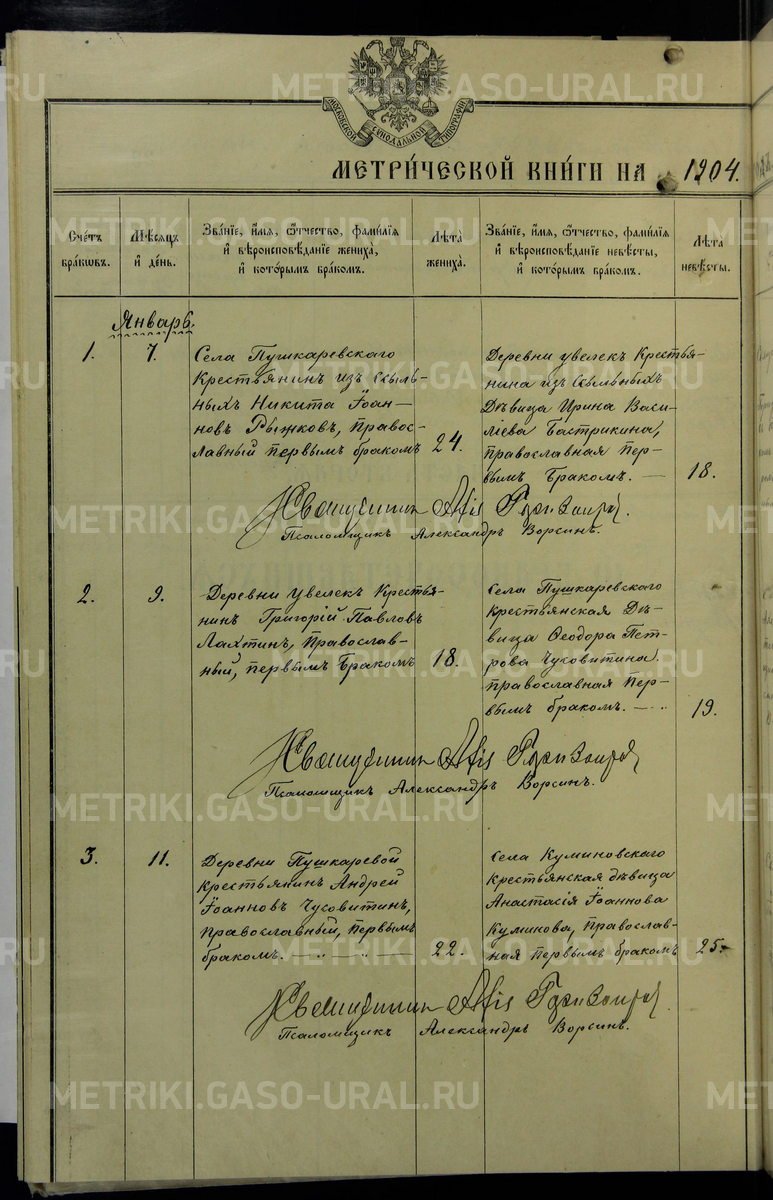 МОСКОВСКОЙ СѴНОДАЛЬНОЙ ТИПОГРАФІИ
МЕТРИ́ЧЕСКОЙ КНИ́ГИ НА 1904.
Сче́тъ бра́ковъ.
Мѣсяцъ и҆ де́нь.
Зва́нїе, и҆́мя, ѻ҆́тчество, фами́лїя
и҆ вѣроисповѣ́данїе жениха̀,
и҆ кото́рымъ бра́комъ.
Лѣ́та жениха̀.
Зва́нїе, и҆́мя, ѻ҆́тчество, фами́лїя
и҆ вѣроисповѣ́данїе невѣ́сты,
и҆ кото́рымъ бра́комъ.
Лѣ́та невѣ́сты.
Январь.
1.
7.
Села Пушкаревскаго
Крестьянинъ изъ ссыль-
ныхъ Никита Іоан-
новъ Рыжковъ, правос-
лавный первымъ бракомъ
24.
Деревни Увелекъ Кресть-
янина изъ ссыльныхъ
Дѣвица Ирина Васи-
льева Бастрикина,
православная пер-
вымъ бракомъ.
18.
Псаломщикъ Александръ Ворсинъ.
2.
9.
Деревни Увелекъ Кресть-
янинъ Григорій Павловъ
Лахтинъ, Православ-
ный, первымъ бракомъ
18.
Села Пушкаревскаго
крестьянская Дѣ-
вица Ѳеодора Пет-
рова Чусовитина
православная пер-
вымъ бракомъ.
19.
Псаломщикъ Александръ Ворсинъ.
3.
11.
Деревни Пушкаревой
крестьянинъ Андрей
Іоанновъ Чусовитинъ,
православный, первымъ
бракомъ.
22.
Села Куминовскаго
крестьянская дѣвица
Анастасія Іоаннова
Куминова, православ-
ная первымъ бракомъ
25.
Псаломщикъ Александръ Ворсинъ.
METRIKI.GASO-URAL.RU